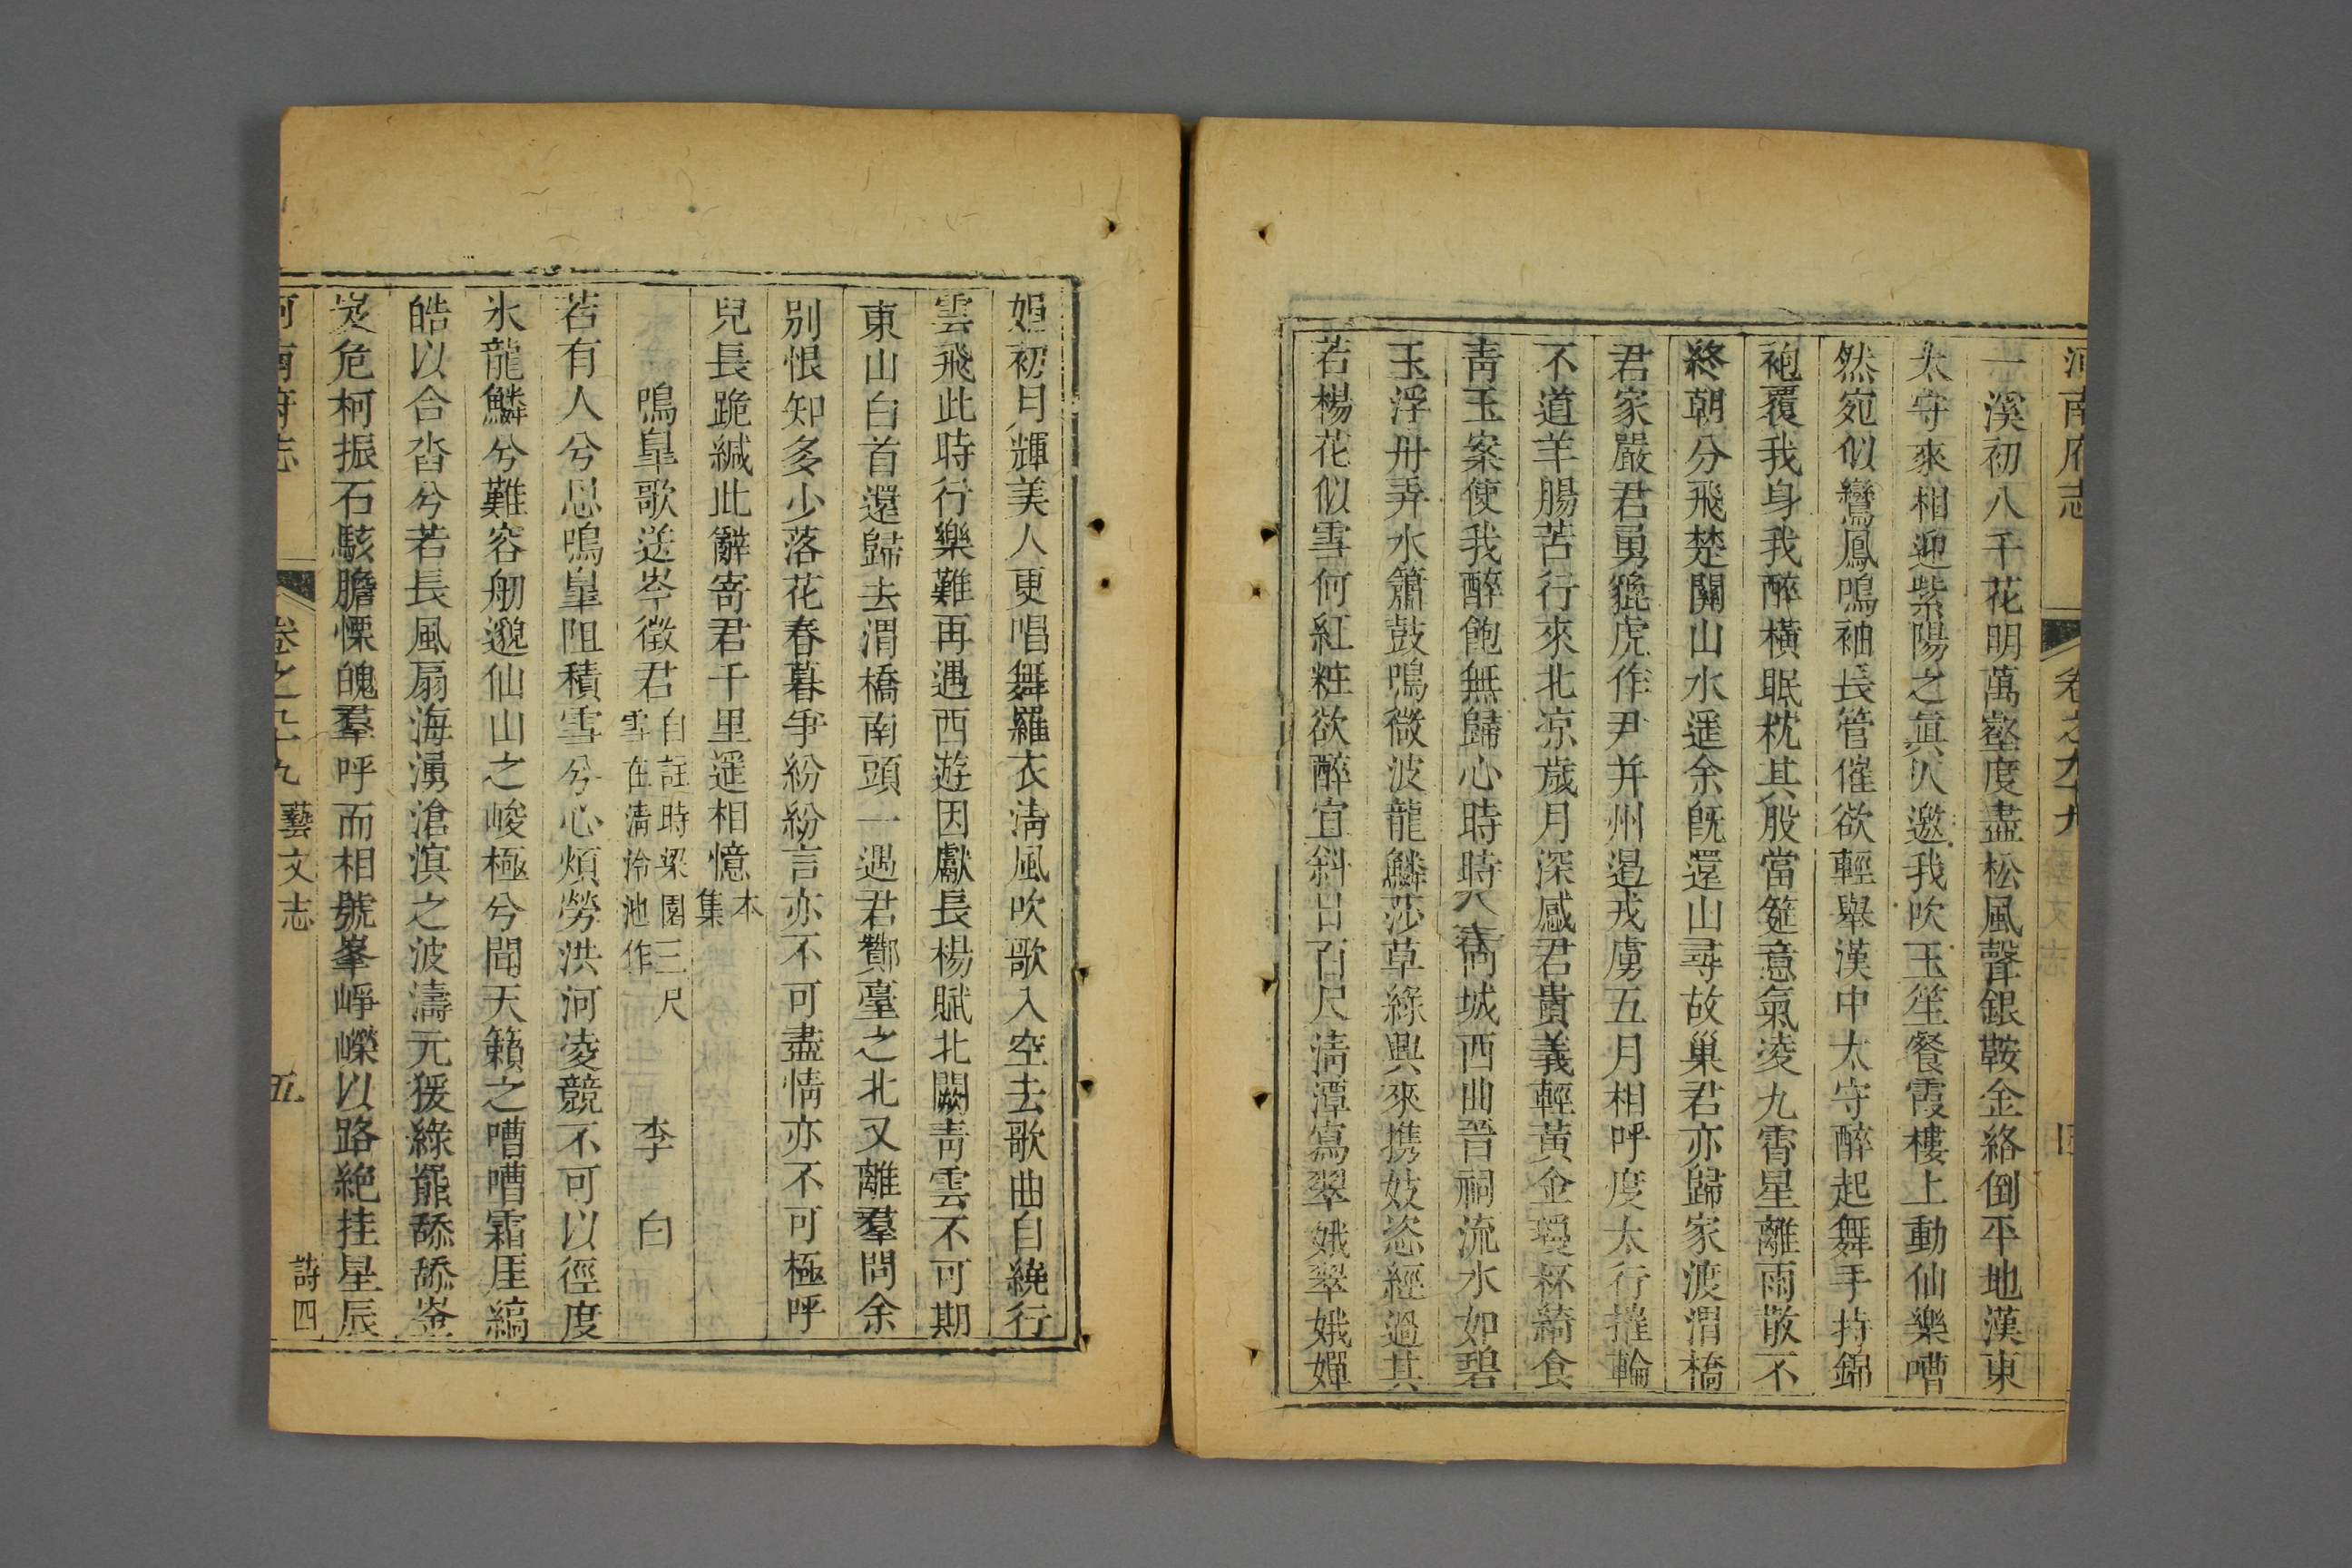 河南府志 卷之九十九
一溪初入千花明萬壑度盡松風聲銀鞍金絡倒平地漢東
太守來相迎紫陽之眞人邀我吹玉笙餐霞樓上動仙樂嘈
然宛似鸞鳳鳴袖長管催欲輕舉漢中太守醉起舞手持錦
袍覆我身我醉橫眠枕其股當筵意氣凌九霄星離雨散不
終朝分飛楚關山水遥余旣還山尋故巢君亦歸家渡渭橋
君家嚴君勇貔虎作尹并州遏戎虜五月相呼度太行摧輪
不道羊腸苦行來北凉歲月深感君貴義輕黃金瓊杯綺食
靑玉案使我醉飽無歸心時時城西曲晉祠流水如碧
玉浮舟弄水簫鼓鳴微波龍鱗莎草綠興來携妓恣經過其
若楊花似雪何紅粧欲醉宜斜日百尺淸潭寫翠娥翠娥嬋
娟初月輝美人更唱舞羅衣淸風吹歌入空去歌曲自繞行
雲飛此時行樂難再遇西遊因獻長楊賦北闕靑雲不可期
東山白首還歸去渭橋南頭一遇君酇臺之北又離羣問余
別恨知多少落花春暮爭紛紛言亦不可盡情亦不可極呼
兒長跪緘此辭寄君千里遥相憶 本集
鳴臯歌送岑徵君 自註時梁園三尺雪在淸泠池作 李白
若有人兮思鳴臯阻積雪兮心煩勞洪河凌競不可以徑度
氷龍鱗兮難容舠邈仙山之峻極兮聞天籟之嘈嘈霜厓縞
皓以合沓兮若長風扇海湧滄溟之波濤元猨綠羆舔舕崟
岌危柯振石駭膽慄魄羣呼而相號峯崢嶸以路絕挂星辰
河南府志 卷之九十九 藝文志 詩四 五